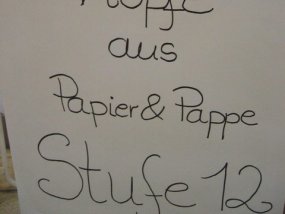 aus
Papier & Pappe
Stufe 12